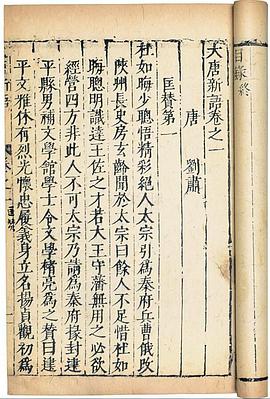 目錄終
大唐新語卷之一
唐 劉肅
匡贊第一
杜如晦少聰悟精彩絕人太宗引為秦府兵曹俄改
陝州長史房玄齡聞於太宗曰餘人不足惜杜如
晦聰明識達王佐之才若大王守藩無用之必欲
經營四方非此人不可太宗乃請為秦府掾封建
平縣男補文學館學士令文學褚亮為之贊曰建
平文雅休有烈光懷忠履義身立名揚貞觀初為